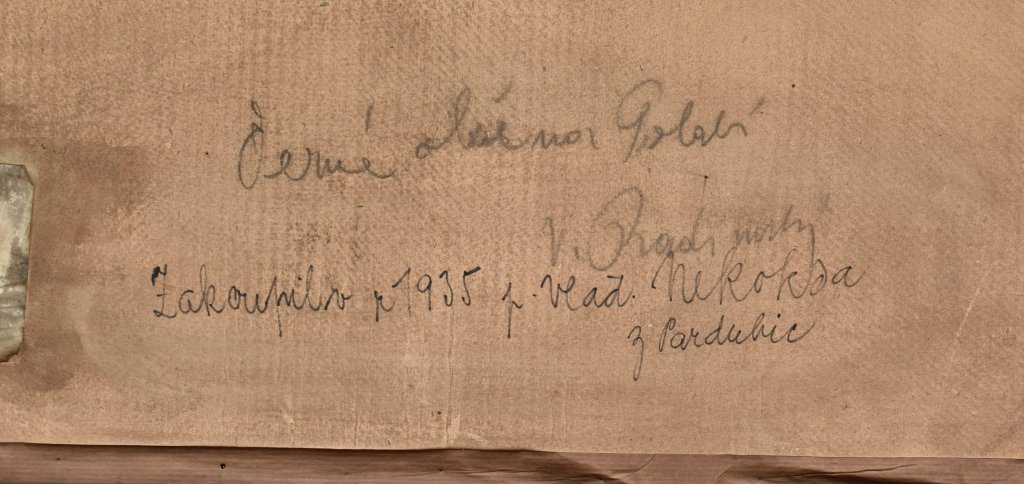 Černé olše na Polabí
V. Radimský
Zakoupil v r 1935 p. Vlad. Nekokša
z Pardubic